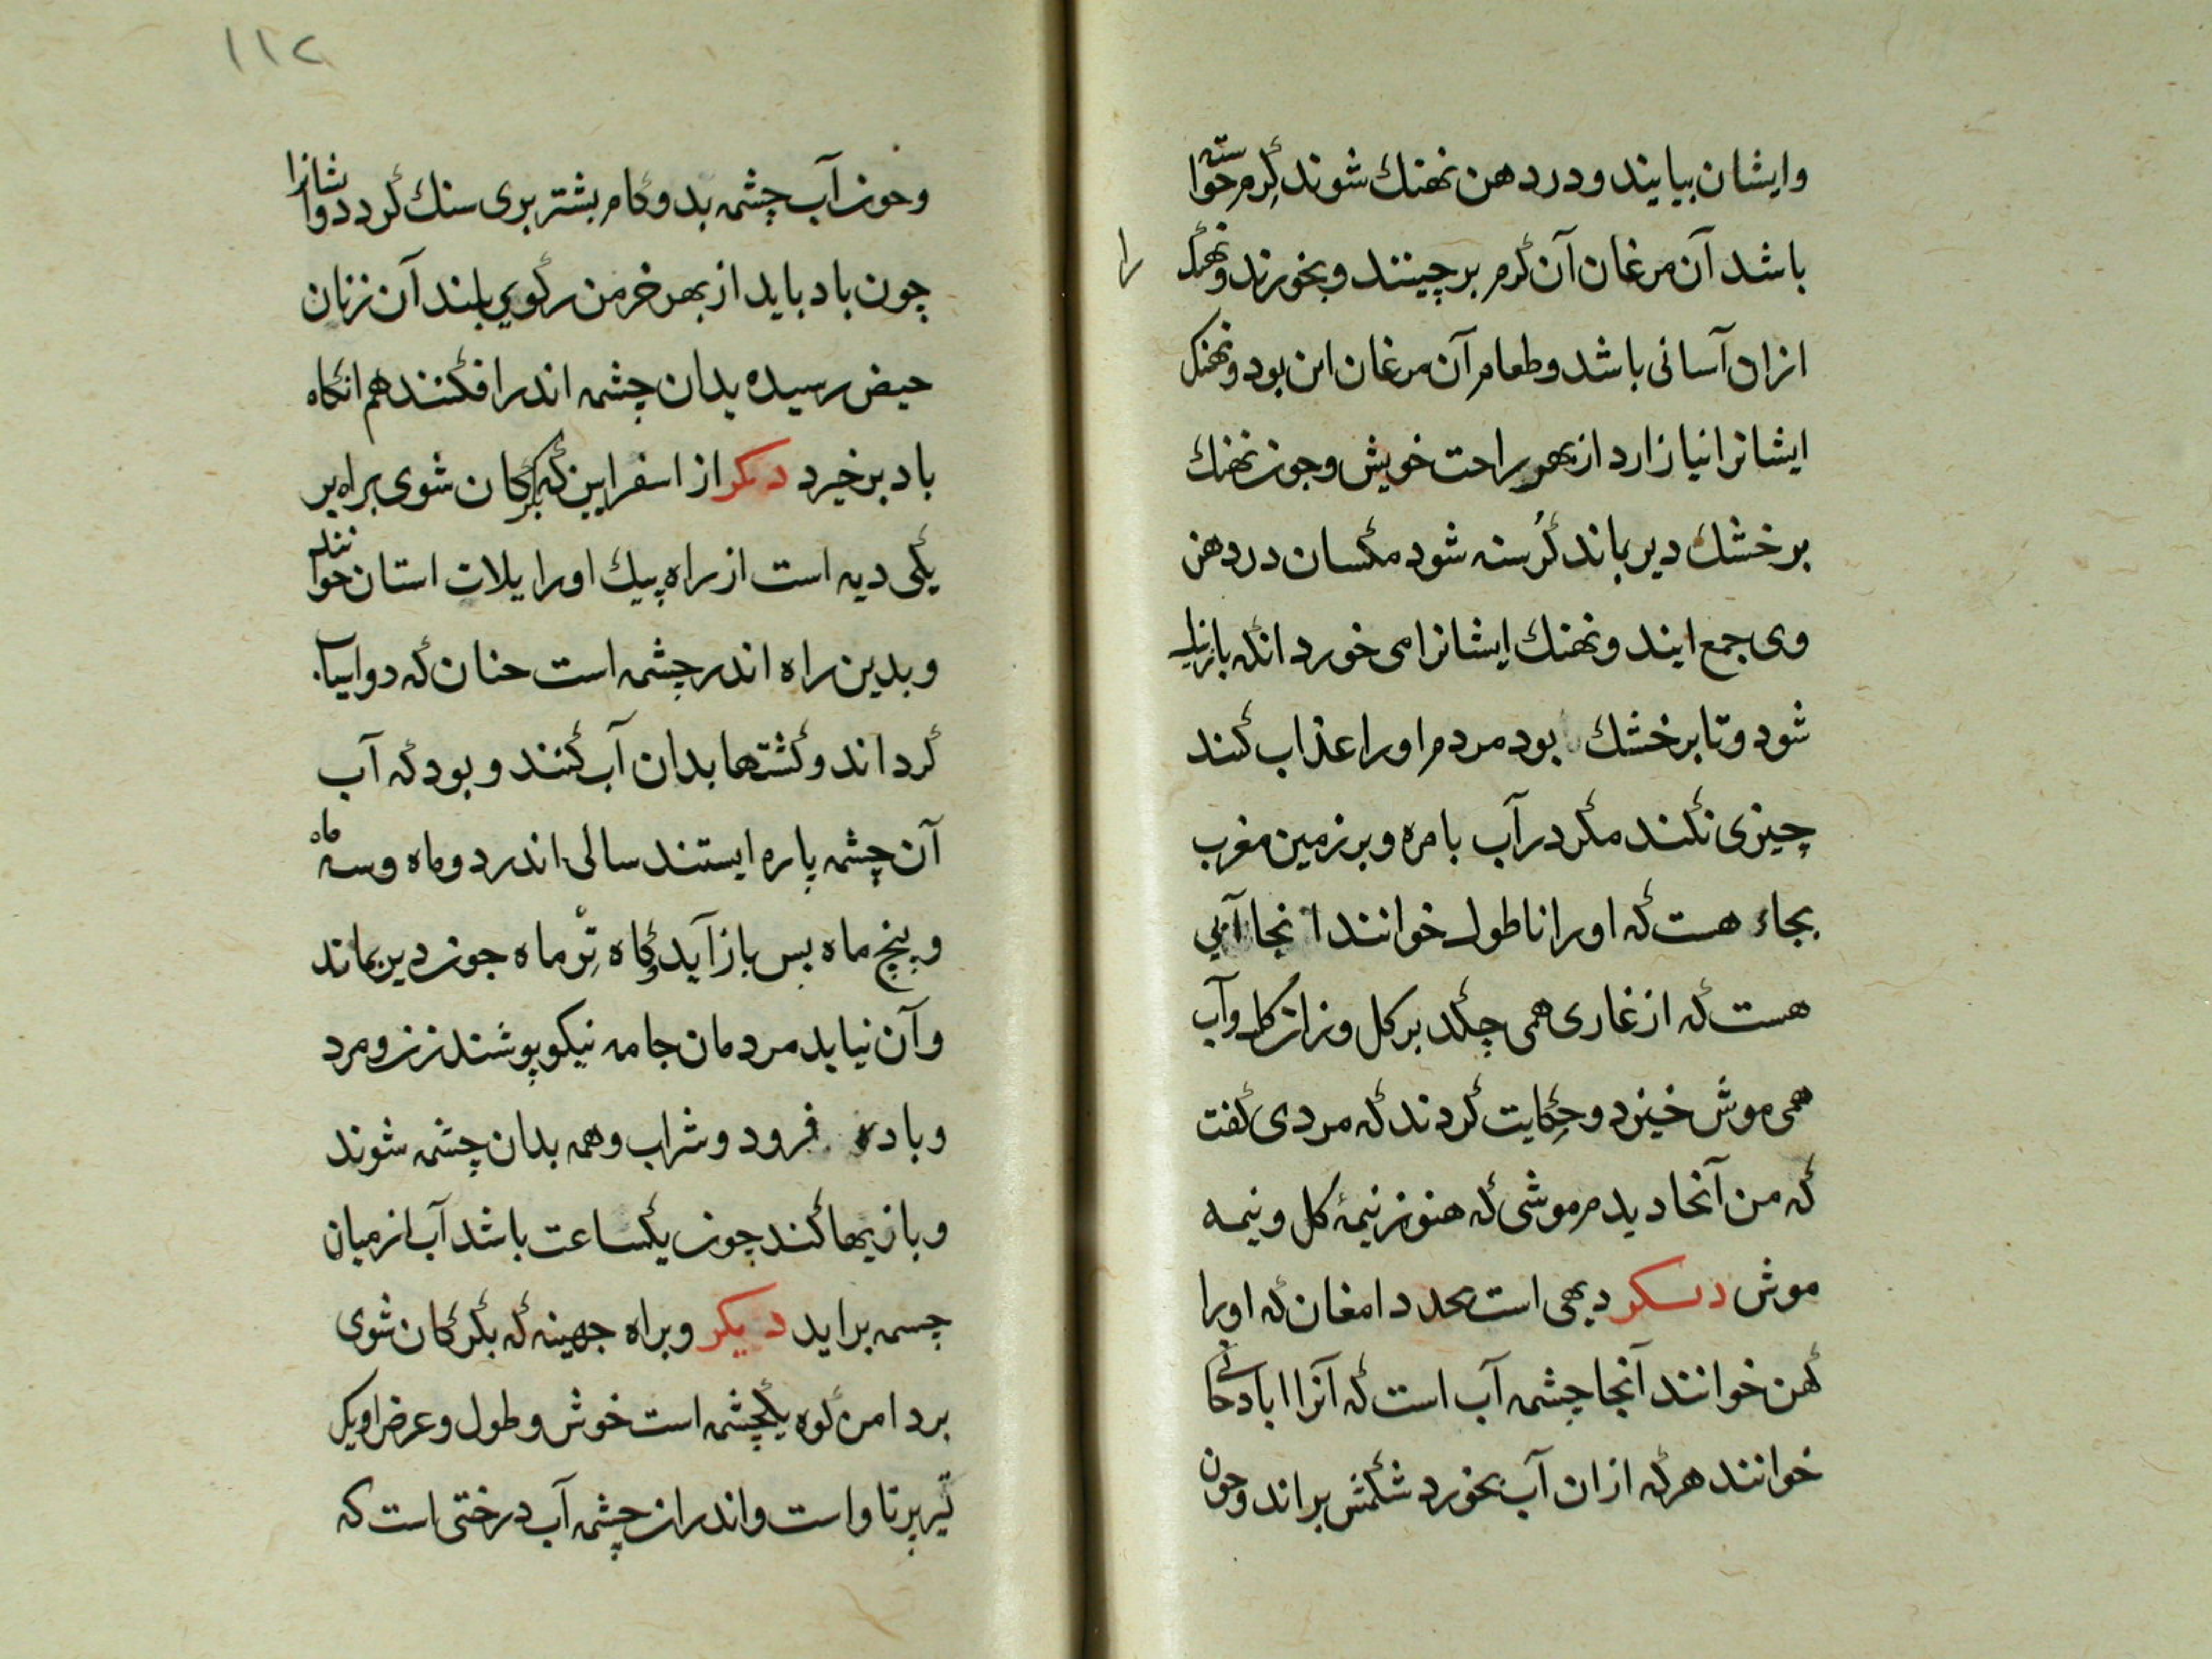 وایشان بیایند ودر دهن نهنك شوند كرم خواسته
باشد آن مرغان آن كرم برچینند وبخورند ونهنك را
ازان آسانی باشد وطعام آن مرغان این بود ونهنك
ایشانرا نیازارد از بهر راحت خویش وجون نهنك
بر خشك دیر باند كرسنه شود مكسان در دهن
وی جمع ایند ونهنك ایشانرا می خورد انكه باز
شود وتا بر خشك بود مردم اورا عذاب كنند
چیزی نكند مكر در آب بامره وبر زمین مغرب
بجاء هست كه اورا ناطول خوانند انجا آبی
هست كه از غاری همی چكد بر كل وزان كل وآب
همی موش خیزد وحكایت كردند كه مردی كفت
كه من آنجا دیدم موشی كه هنوز نیمۀ كل ونیمه
موش دیكر دیهی است بحد دامغان كه اورا
كهن خوانند آنجا چشمه آب است كه آنرا اباد خانی
خوانند هركه ازان آب بخورد شكمش براند وجون
١١٢
وخون آب چشمه بدوكام بشتر بری سنك كردد وایشانرا
چون باد باید از بهر خرمن ركویی بلند آن زنان
حیض رسیده بدان چشمه اندر افكنند هم انكاه
باد بر خیرد دیكر از اسفراین كه بكركان شوی براه بر
یكی دیه است از راه پیك اورا یلات استان خوانند
وبدین راه اندر چشمه است جنان كه دو اسیا
كرداند وكشتها بدان آب كنند وبود كه آب
آن چشمه پاره ایستند سالی اندر دو ماه وسه ماه
وپنج ماه بس باز آید وكاه تر ماه جون دیر بماند
وآن نیاید مردمان جامه نیكو پوشند زن ومرد
وباد فرود وشراب وهمه بدان چشمه شوند
وبازیها كنند چون یكساعت باشد آب از میان
چسمه براید دیكر وبراه جهینه كه بكركان شوی
بر دامن كوه یكچشمه است خوش وطول وعرض او یك
تیر پرتاو است واندران چشمه آب درختی است كه